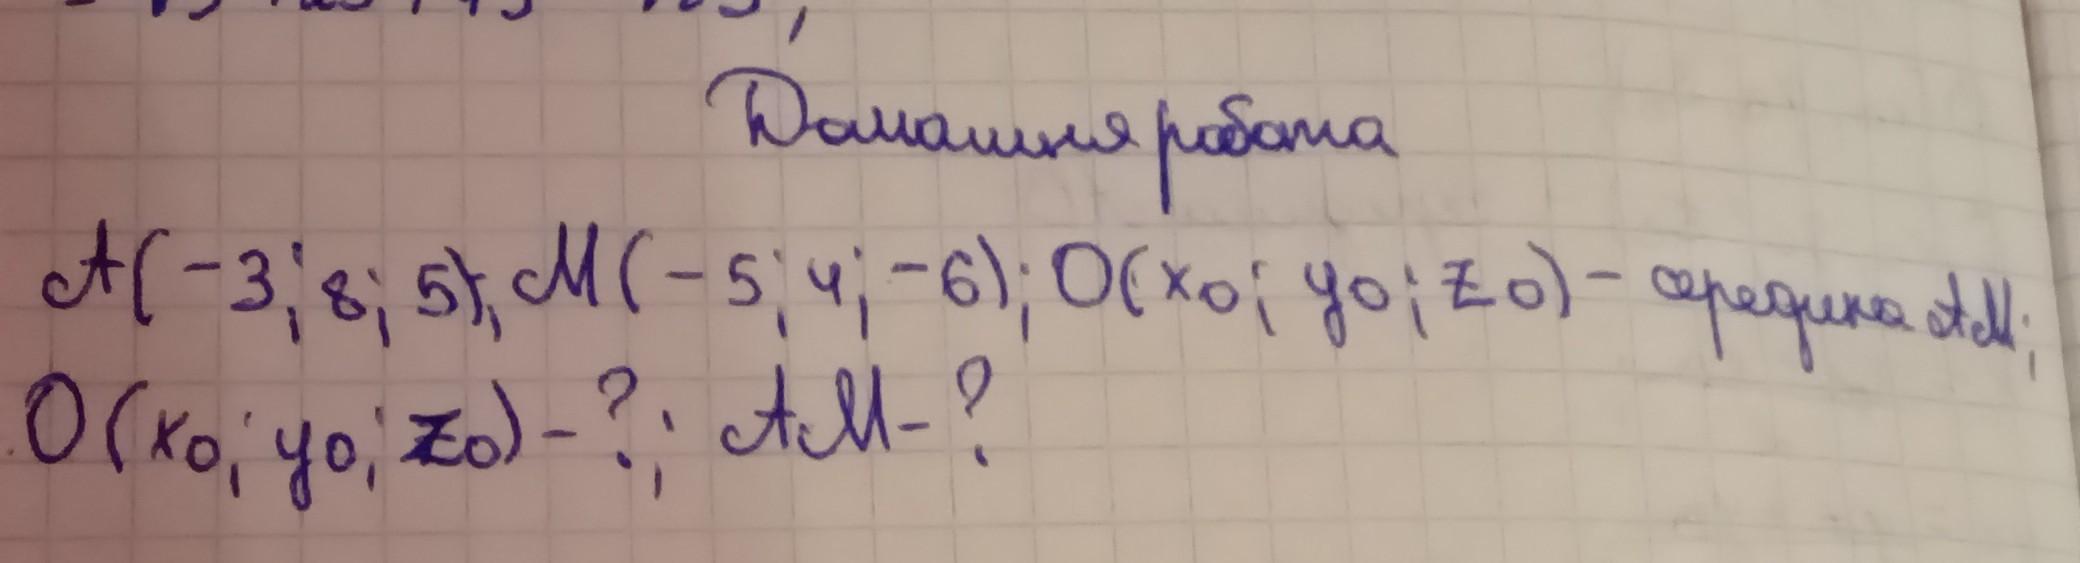 Домашня робота
А(-3; 8; 5); М(-5; 4; -6); О(x₀; y₀; z₀) - середина АМ;
О(x₀; y₀; z₀) - ?; АМ - ?